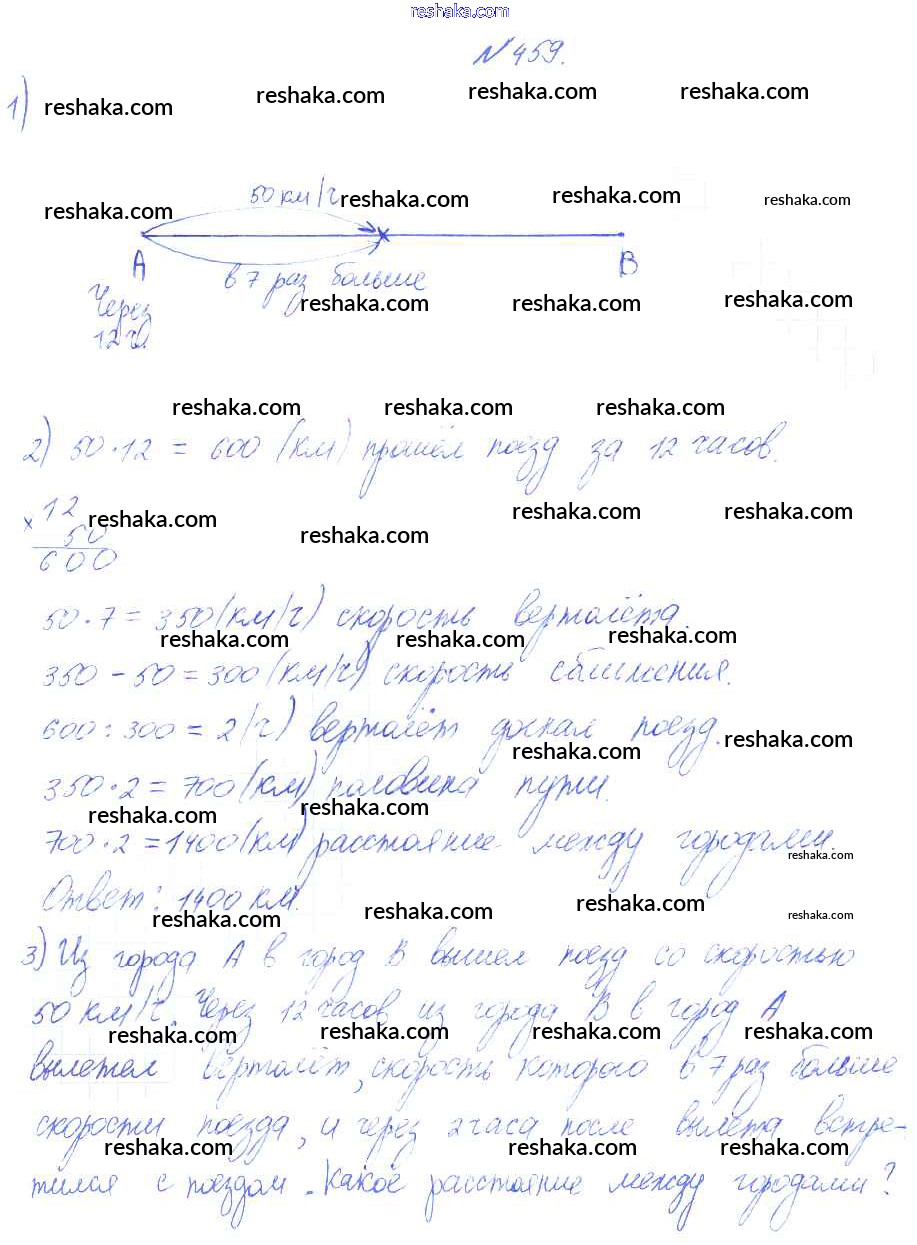 reshaka.com
№ 459.
1) reshaka.com reshaka.com reshaka.com reshaka.com
50 км/ч
reshaka.com reshaka.com reshaka.com reshaka.com
А В
в 7 раз больше
Через reshaka.com reshaka.com reshaka.com
12 ч.
reshaka.com reshaka.com reshaka.com
2) 50 · 12 = 600 (км) прошёл поезд за 12 часов.
× 12 reshaka.com reshaka.com reshaka.com
50 reshaka.com
600
50 · 7 = 350 (км/ч) скорость вертолёта.
reshaka.com reshaka.com reshaka.com
350 - 50 = 300 (км/ч) скорость сближения.
600 : 300 = 2 (ч) вертолёт догнал поезд.
reshaka.com reshaka.com
350 · 2 = 700 (км) половина пути.
reshaka.com reshaka.com
700 · 2 = 1400 (км) расстояние между городами.
reshaka.com
Ответ: 1400 км.
reshaka.com reshaka.com reshaka.com reshaka.com
3) Из города А в город В вышел поезд со скоростью
50 км/ч. Через 12 часов из города В в город А
reshaka.com reshaka.com reshaka.com reshaka.com
вылетел вертолёт, скорость которого в 7 раз больше
скорости поезда, и через 2 часа после вылета встре-
reshaka.com reshaka.com reshaka.com reshaka.com
тился с поездом. Какое расстояние между городами?